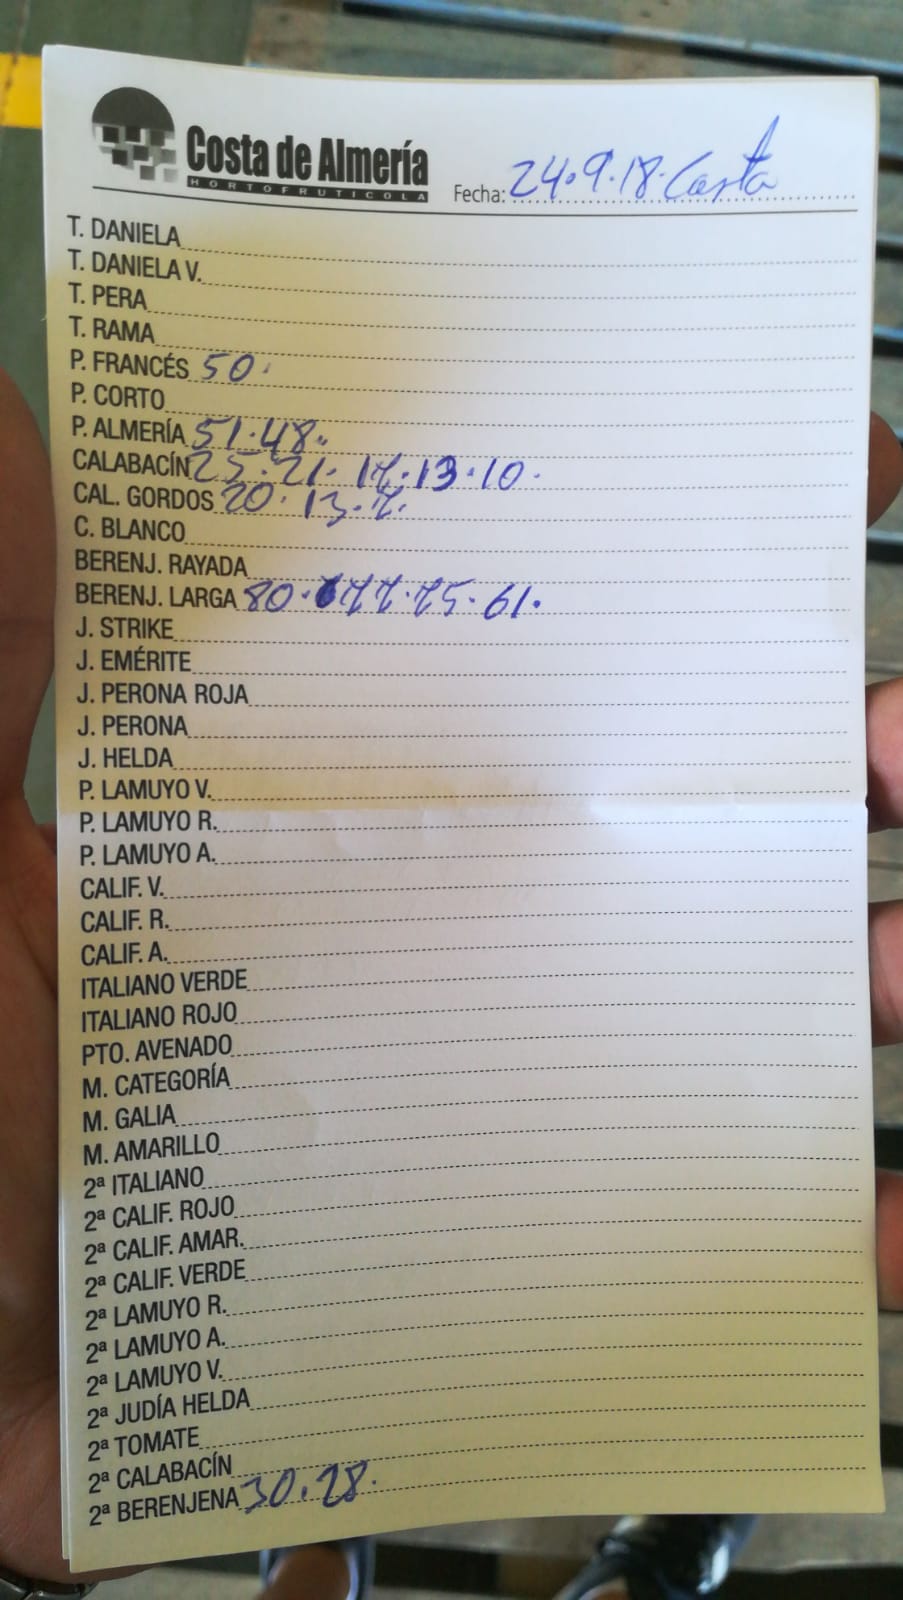 Costa de Almería
HORTOFRUTICOLA
Fecha: 24.9.18. Costa
T. DANIELA
T. DANIELA V.
T. PERA
T. RAMA
P. FRANCÉS 50.
P. CORTO
P. ALMERÍA 51.48.
CALABACÍN 25.21.17.13.10.
CAL. GORDOS 20.13.7.
C. BLANCO
BERENJ. RAYADA
BERENJ. LARGA 80.77.75.61.
J. STRIKE
J. EMÉRITE
J. PERONA ROJA
J. PERONA
J. HELDA
P. LAMUYO V.
P. LAMUYO R.
P. LAMUYO A.
CALIF. V.
CALIF. R.
CALIF. A.
ITALIANO VERDE
ITALIANO ROJO
PTO. AVENADO
M. CATEGORÍA
M. GALIA
M. AMARILLO
2ª ITALIANO
2ª CALIF. ROJO
2ª CALIF. AMAR.
2ª CALIF. VERDE
2ª LAMUYO R.
2ª LAMUYO A.
2ª LAMUYO V.
2ª JUDÍA HELDA
2ª TOMATE
2ª CALABACÍN
2ª BERENJENA 30.28.